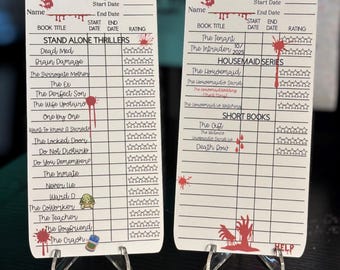 Start Date
Name
End Date
BOOK TITLE
START DATE
END DATE
RATING
STAND ALONE THRILLERS
Dead Med
Brain Damage
The Surrogate Mother
The Ex
The Perfect Son
The Wife Upstairs
One by One
Want to Know A Secret?
The Locked Door
Do Not Disturb
Do You Remember?
The Inmate
Never Lie
Ward D
The Coworker
The Teacher
The Boyfriend
The Crash
Start Date
Name
End Date
BOOK TITLE
START DATE
END DATE
RATING
The Tenant
The Intruder 10/2025
HOUSEMAID SERIES
The Housemaid
The Housemaid's Secret
The Housemaid's Wedding
The Housemaid is Watching
SHORT BOOKS
The Gift
Death Row
HELP